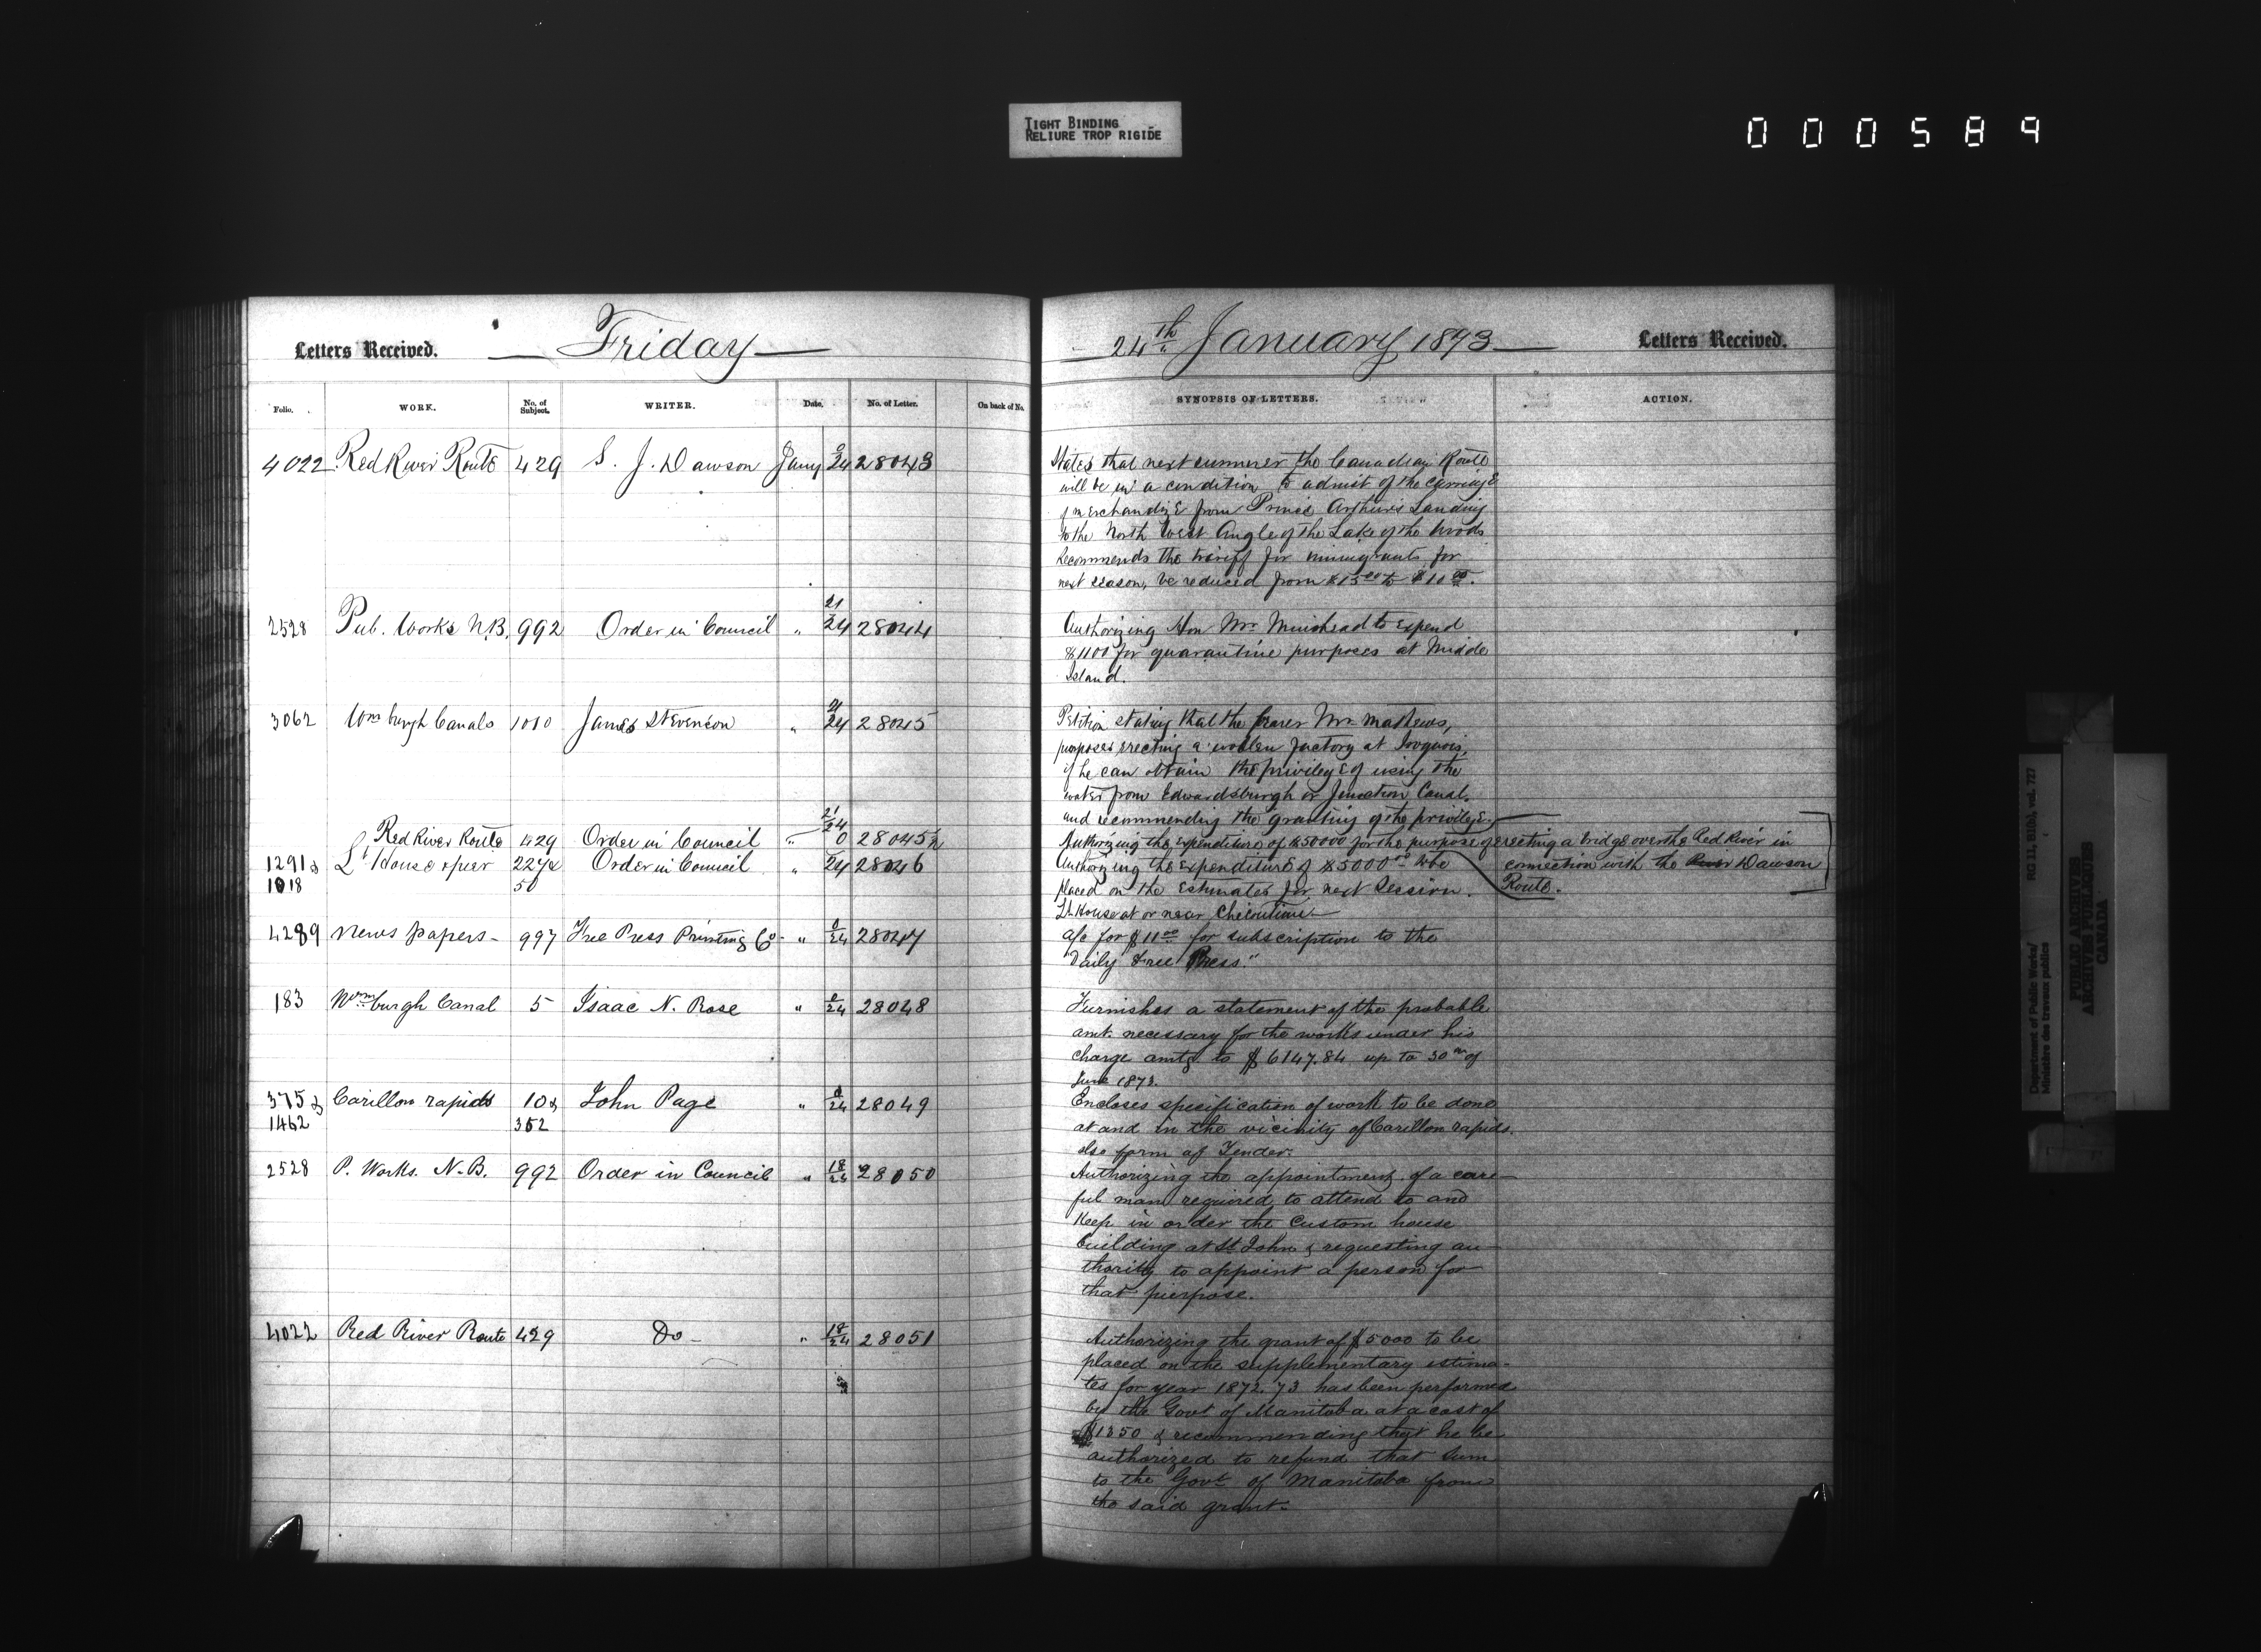 TIGHT BINDING
RELIURE TROP RIGIDE
000589
Letters Received. Friday
Folio. WORK. No. of Subject. WRITER. Date. No. of Letter. On back of No.
4022 Red River Route 429 S. J. Dawson Jany 0/24 28043
2528 Pub. Works N.B. 992 Order in Council " 21/24 28044
3062 Wmburgh Canals 1010 James Stevenson " 21/24 28045
Red River Route 429 Order in Council " 21/24 0 28045½
1291 & Lt House & pier 227 & Order in Council " 24 28046
1018 50
4289 News papers - 997 Free Press Printing Co - " 0/24 28047
183 Wmburgh Canal 5 Isaac N. Rose " 0/24 28048
375 & Carillon rapids 10 & John Page " 0/24 28049
1462 352
2528 P. Works. N.B. 992 Order in Council " 18/24 28050
4022 Red River Route 429 Do - " 18/24 28051
24th January 1873 Letters Received.
SYNOPSIS OF LETTERS. ACTION.
States that next summer the Canadian Route
will be in a condition to admit of the carriage
of merchandize from Prince Arthur's Landing
to the North West Angle of the Lake of the Woods
Recommends the tariff for immigrants for
next season, be reduced from $15.00 to $10.00.
Authorizing Hon Mr. Muirhead to expend
$1100 for quarantine purposes at Middle
Island.
Petition stating that the bearer Mr. Mathews,
purposes erecting a woollen factory at Iroquois,
if he can obtain the privilege of using the
water from Edwardsburgh or Junction Canal.
and recommending the granting of the privilege.
Authorizing the expenditure of $50000 for the purpose of erecting a bridge over the Red River in
connection with the River Dawson
Route.
Authorizing the expenditure of $5000.00 to be
placed on the Estimates for next Session.
Lt. House at or near Chicoutimi -
a/c for $11.00 for subscription to the
Daily Free Press."
Furnishes a statement of the probable
amt. necessary for the works under his
charge amtg to $6147.84 up to 30th of
June 1873.
Encloses specification of work to be done
at and in the vicinity of Carillon rapids.
also form of Tender.
Authorizing the appointment of a care-
ful man required to attend to and
keep in order the Custom house
building at St John & requesting au-
thority to appoint a person for
that purpose.
Authorizing the grant of $5000 to be
placed on the supplementary estima-
tes for year 1872.73 has been performed
by the Govt of Manitoba at a cost of
$1350 & recommending that he be
authorized to refund that sum
to the Govt of Manitoba from
the said grant.
Department of Public Works/
Ministère des travaux publics
RG 11, B1(b), vol. 727
PUBLIC ARCHIVES
ARCHIVES PUBLIQUES
CANADA